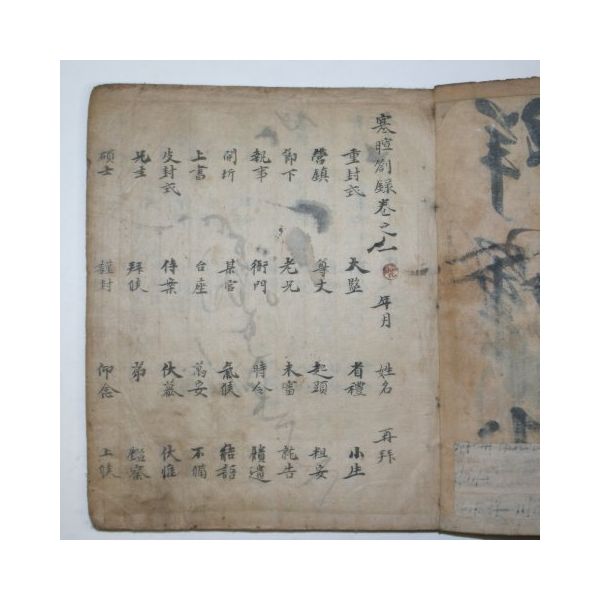 寒暄箚錄卷之一 年月 姓名 再拜
重封式 大監 省禮 小生
營鎭 尊丈 起頭 粗安
節下 老兄 未審 忙告
執事 衙門 時令 饋遺
開折 某官 氣候 結語
上書 台座 萬安 不備
皮封式 侍案 伏慕 伏惟
先生 拜候 弟 鑒察
碩士 謹封 仰念 上候